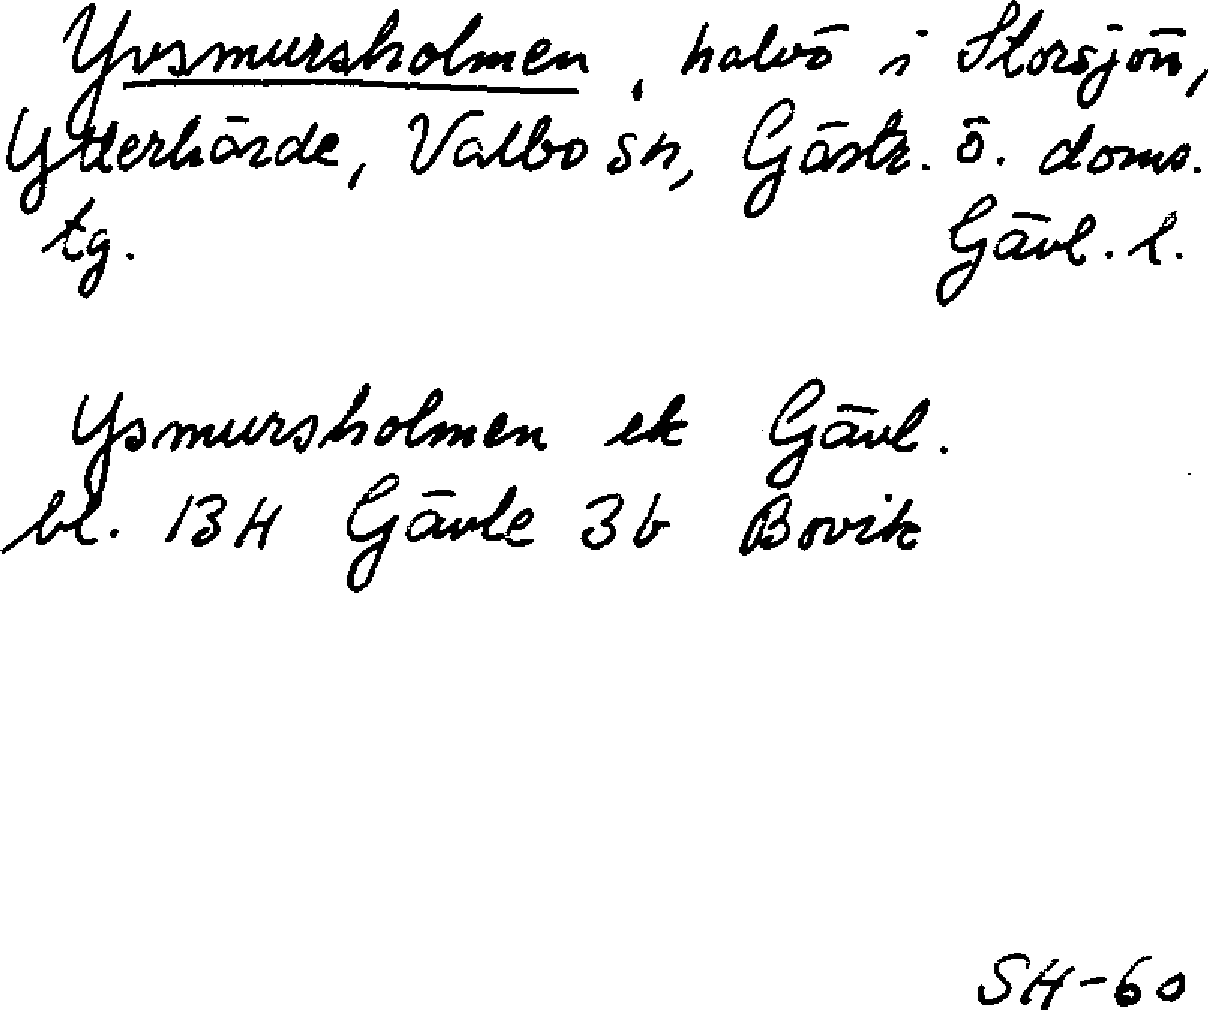 Yvsmursholmen, halvö i Storsjön,
Ytterhärde, Valbo sn, Gästr. ö. doms.
tg. Gävl. l.
Ysmursholmen ek Gävl.
bl. 13H Gävle 3b Bovik
SH-60